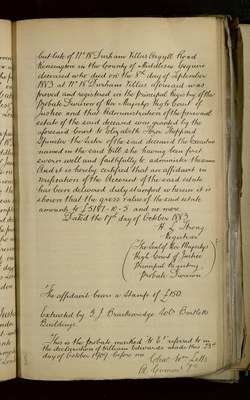 but late of No 18 Durham Villas Argyll Road
Kensington in the County of Middlesex Esquire
deceased who died on the 8th day of September
1883 at No 18 Durham Villas aforesaid was
proved and registered in the principal registry of the
Probate Division of her Majestys High Court of
Justice and that Administration of the personal
estate of the said deceased was granted by the
aforesaid Court to Elizabeth Sheppard
Spinster the sister of the said deceased the Executrix
named in the said Will she having been first
sworn well and faithfully to administer the same
And it is hereby certified that an affidavit in
verification of the Account of the said estate
has been delivered duly stamped wherein it is
shewn that the gross value of the said estate
amounts to £5187-10-3 and no more
Dated the 17th day of October 1883
H L Strong
Registrar
(The Seal of Her Majestys
High Court of Justice
Principal Registry
Probate Division)
The affidavit bears a Stamp of £150.
Extracted by Solr Bartletts
Buildings.
This is the probate marked referred to in
the declaration of William Edwards made this
day of October 1909 before me
Wm Letts
A Commr